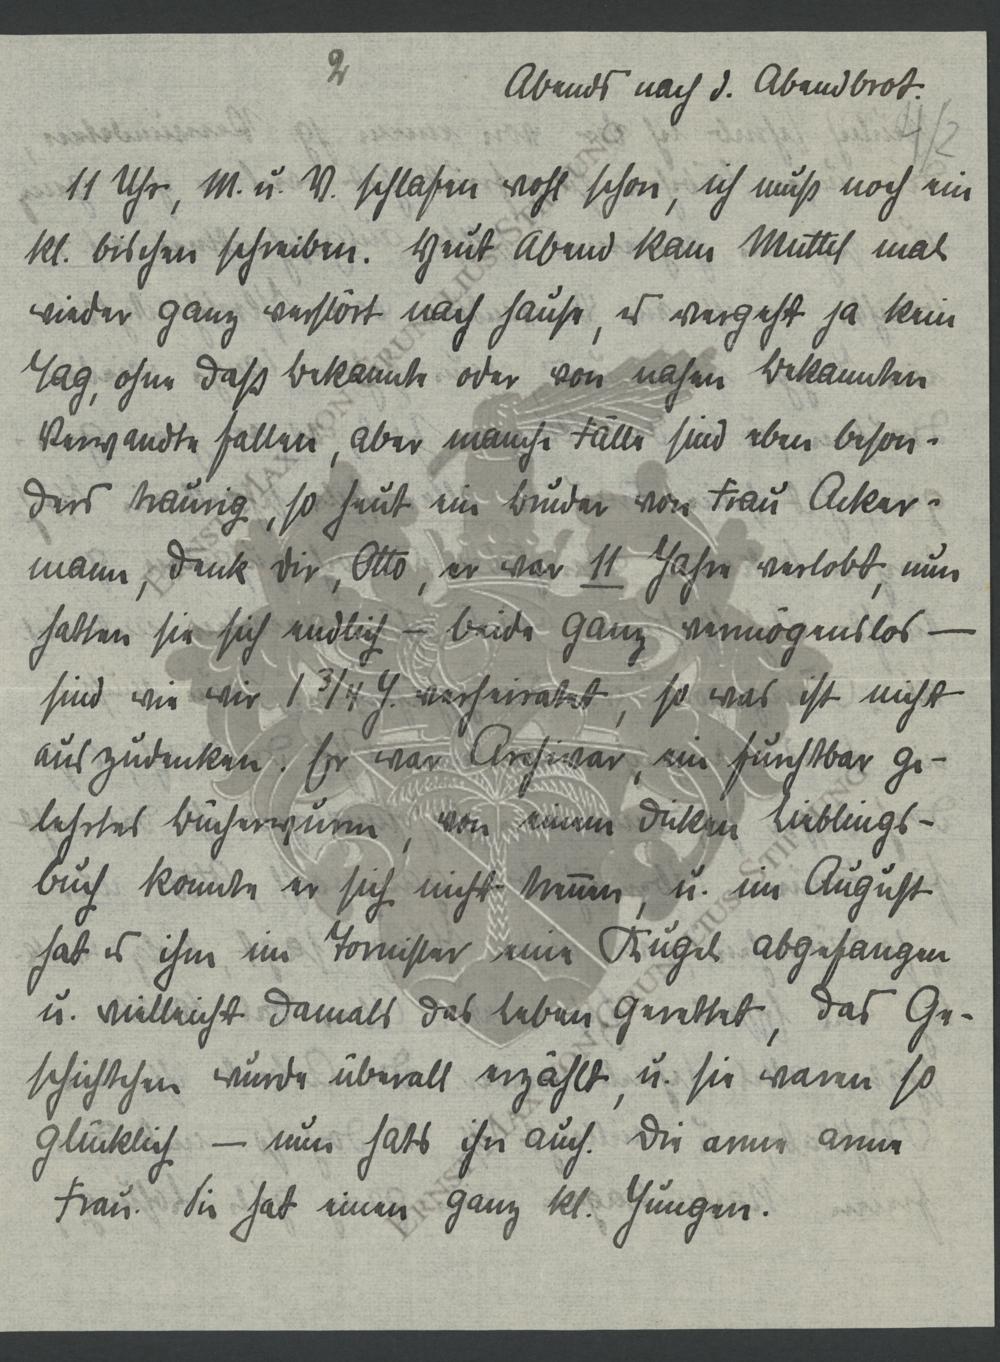 2
Abends nach d. Abendbrot.
4/2
11 Uhr, M. u. V. schlafen wohl schon, ich muß noch ein
kl. bischen schreiben. Heut Abend kam Muttel mal
wieder ganz verstört nach hause, es vergeht ja kein
Tag, ohne daß bekannte oder von nahen bekannten
Verwandte fallen, aber manche Fälle sind eben beson-
ders traurig, so heut ein bruder von Frau Acker-
mann, denk dir, Otto, er war 11 Jahre verlobt, nun
hatten sie sich endlich – beide ganz vermögenslos –
sind wie wir 1 3/4 J. verheiratet, so was ist nicht
auszudenken. Er war Archivar, ein furchtbar ge-
lehrtes bücherwurm, von einem dicken Lieblings-
buch konnte er sich nicht trennen, u. im August
hat es ihm im Tornister eine Kugel abgefangen
u. vielleicht damals das Leben gerettet, das Ge-
schichtchen wurde überall erzählt, u. sie waren so
glücklich – nun hats ihn auch. Die arme arme
Frau. Sie hat einen ganz kl. Jungen.
ERNST MAX VON GRUNELIUS-STIFTUNG
ERNST MAX VON GRUNELIUS-STIFTUNG